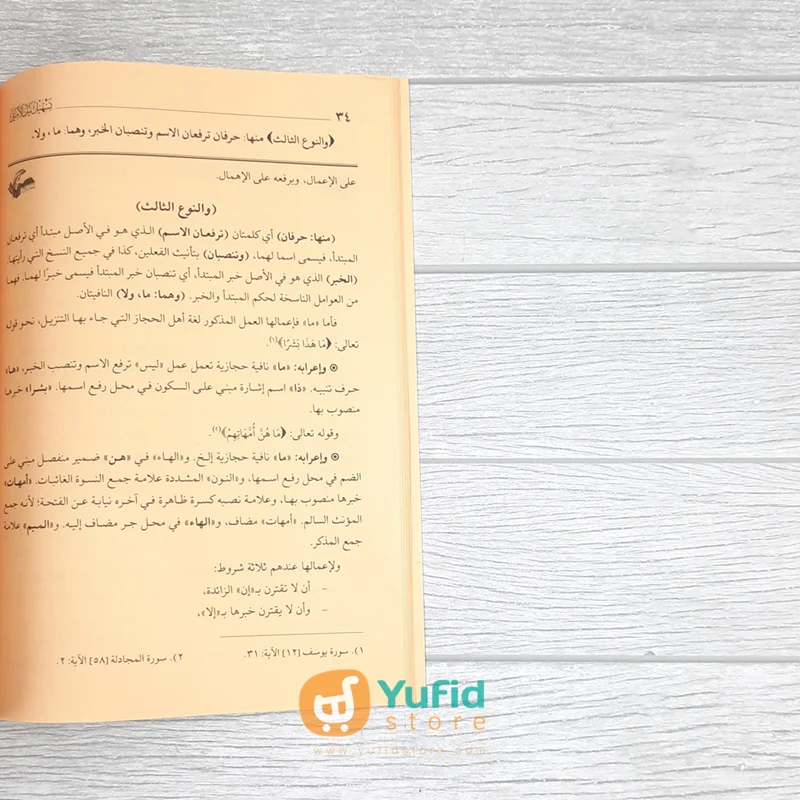 ٣٤
﴿والنوع الثالث﴾ منها: حرفان ترفعان الاسم وتنصبان الخبر، وهما: ما، ولا.
على الإعمال، ويرفعه على الإهمال.
(والنوع الثالث)
(منها: حرفان) أي كلمتان (ترفعان الاسم) الذي هو في الأصل مبتدأ أي ترفعان
المبتدأ، فيسمى اسما لهما، (وتنصبان) بتأنيث الفعلين، كذا في جميع النسخ التي رأيتها.
(الخبر) الذي هو في الأصل خبر المبتدأ، أي تنصبان خبر المبتدأ فيسمى خبرًا لهما. فهما
من العوامل الناسخة لحكم المبتدأ والخبر. (وهما: ما، ولا) النافيتان.
فأما «ما» فإعمالها العمل المذكور لغة أهل الحجاز التي جاء بها التنزيل، نحو قوله
تعالى: ﴿مَا هَذَا بَشَرًا﴾(١).
⊙ وإعرابه: «ما» نافية حجازية تعمل عمل «ليس» ترفع الاسم وتنصب الخبر، «ها»
حرف تنبيه. «ذا» اسم إشارة مبني على السكون في محل رفع اسمها. «بشرا» خبرها
منصوب بها.
وقوله تعالى: ﴿مَا هُنَّ أُمَّهَاتِهِمْ﴾(٢).
⊙ وإعرابه: «ما» نافية حجازية إلخ. و«الهاء» في «هن» ضمير منفصل مبني على
الضم في محل رفع اسمها، و«النون» المشددة علامة جمع النسوة الغائبات. «أمهات»
خبرها منصوب بها، وعلامة نصبه كسرة ظاهرة في آخره نيابة عن الفتحة؛ لأنه جمع
المؤنث السالم. «أمهات» مضاف، و«الهاء» في محل جر مضاف إليه. و«الميم» علامة
جمع المذكر.
ولإعمالها عندهم ثلاثة شروط:
- أن لا تقترن بـ«إن» الزائدة،
- وأن لا يقترن خبرها بـ«إلا»،
١). سورة يوسف [١٢] الآية: ٣١. ٢). سورة المجادلة [٥٨] الآية: ٢.
Yufid
store
www.yufidstore.com